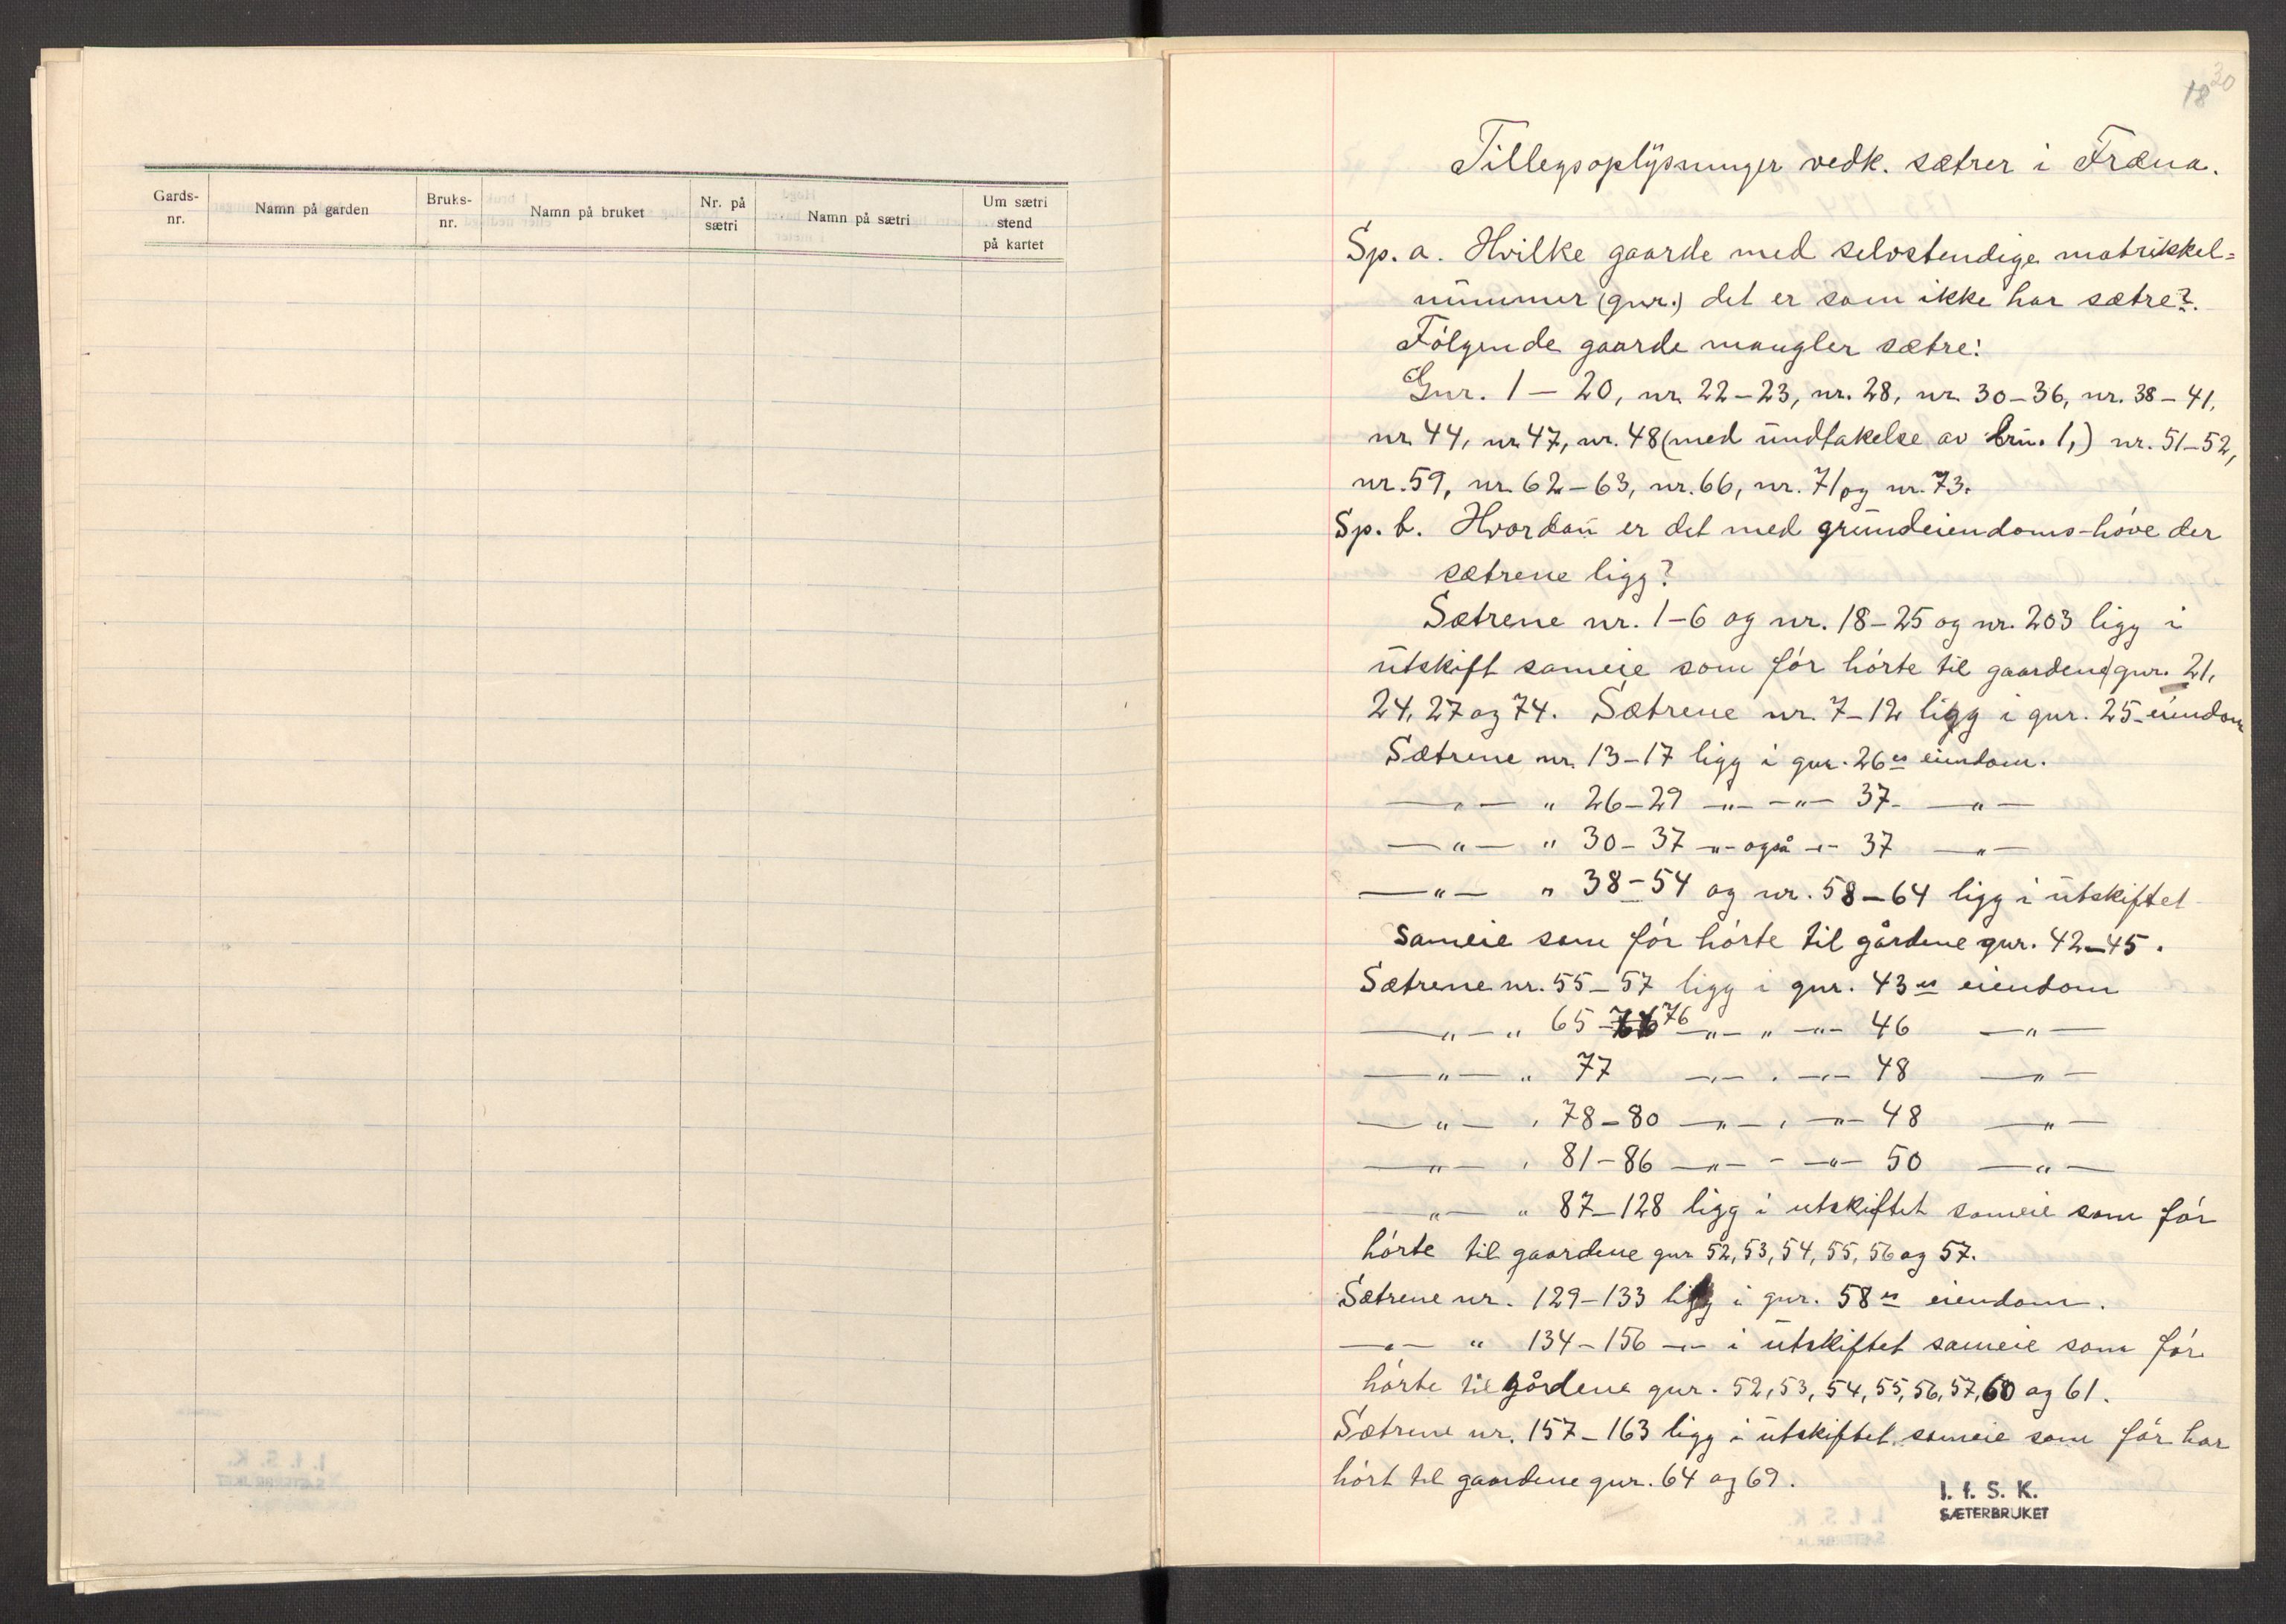 Gards-nr.
Namn på garden
Bruks-nr.
Namn på bruket
Nr. på sætri
Namn på sætri
Um sætri stend på kartet
30
18
Tillegsoplysninger vedk. sætrer i Fræna.
Sp. a. Hvilke gaarde med selvstendige matrikkel=
nummer (gnr.) det er som ikke har sætre?
Følgende gaarde mangler sætre:
Gnr. 1 – 20, nr. 22–23, nr. 28, nr. 30–36, nr. 38–41,
nr. 44, nr. 47, nr. 48 (med undtakelse av brn. 1,) nr. 51–52,
nr. 59, nr. 62–63, nr. 66, nr. 71 og nr. 73.
Sp. b. Hvordan er det med grundeiendoms-høve der
sætrene ligg?
Sætrene nr. 1–6 og nr. 18–25 og nr. 203 ligg i
utskift sameie som før hørte til gaardene gnr. 21,
24, 27 og 74. Sætrene nr. 7–12 ligg i gnr. 25 eiendom
Sætrene nr. 13–17 ligg i gnr. 26es eiendom.
—„— „ 26–29 —„— —„— 37. —„—
—„— „ 30–37 —„— også —„— 37 —„—
—„— „ 38–54 og nr. 58–64 ligg i utskiftet
sameie som før hørte til gårdene gnr. 42–45.
Sætrene nr. 55–57 ligg i gnr. 43es eiendom
—„— „ 65–76 —„— „ —„— 46 —„—
—„— „ 77 —„— „ —„— 48 —„—
—„— „ 78–80 —„— „ —„— 48 —„—
—„— „ 81–86 —„— „ —„— 50 —„—
—„— „ 87–128 ligg i utskiftet sameie som før
hørte til gaardene gnr 52, 53, 54, 55, 56 og 57.
Sætrene nr. 129–133 ligg i gnr. 58es eiendom.
—„— „ 134–156 —„— i utskiftet sameie som før
hørte til gårdene gnr. 52, 53, 54, 55, 56, 57, 60 og 61.
Sætrene nr. 157–163 ligg i utskiftet sameie som før har
hørt til gaardene gnr. 64 og 69.
I. f. S. K.
SÆTERBRUKET